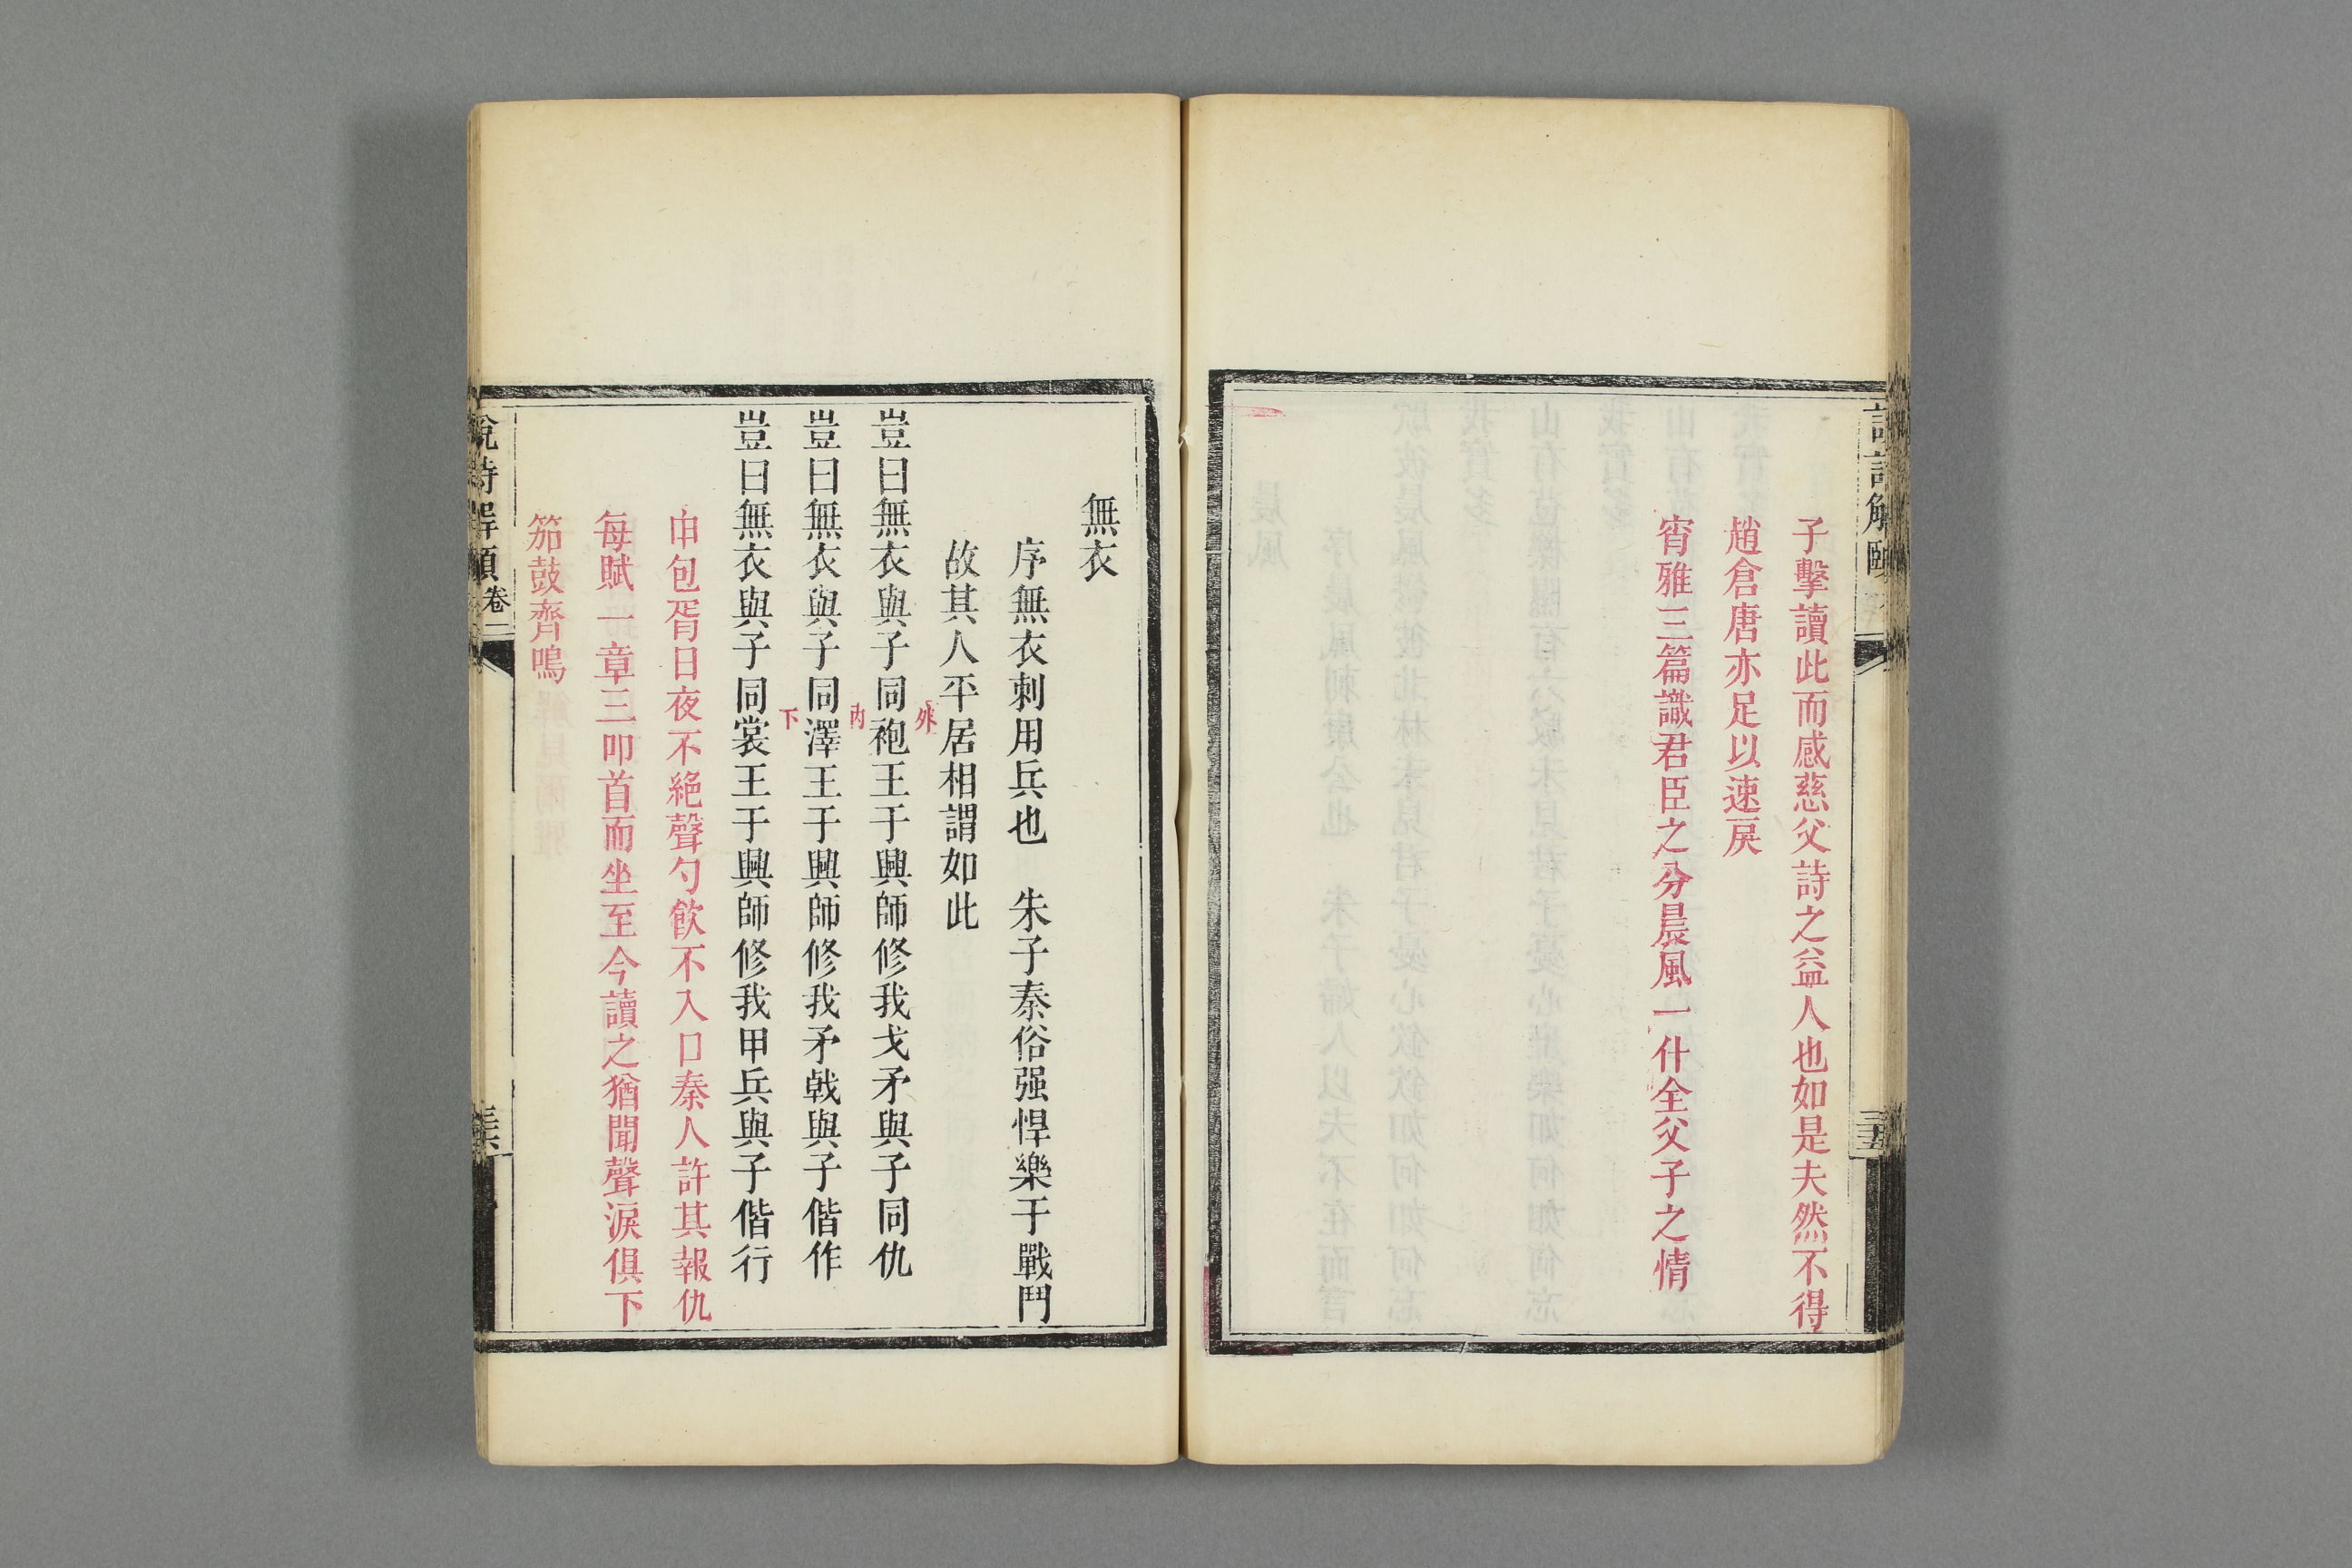 子擊讀此而感慈父詩之益人也如是夫然不得
趙倉唐亦足以速戾
宵雅三篇識君臣之分晨風一什全父子之情
無衣
序無衣刺用兵也　朱子秦俗强悍樂于戰鬥
故其人平居相謂如此
豈曰無衣與子同袍王于興師修我戈矛與子同仇
外
豈曰無衣與子同澤王于興師修我矛戟與子偕作
內
豈曰無衣與子同裳王于興師修我甲兵與子偕行
下
申包胥日夜不絕聲勺飮不入口秦人許其報仇
每賦一章三叩首而坐至今讀之猶聞聲淚俱下
笳鼓齊鳴
說詩解頤卷二